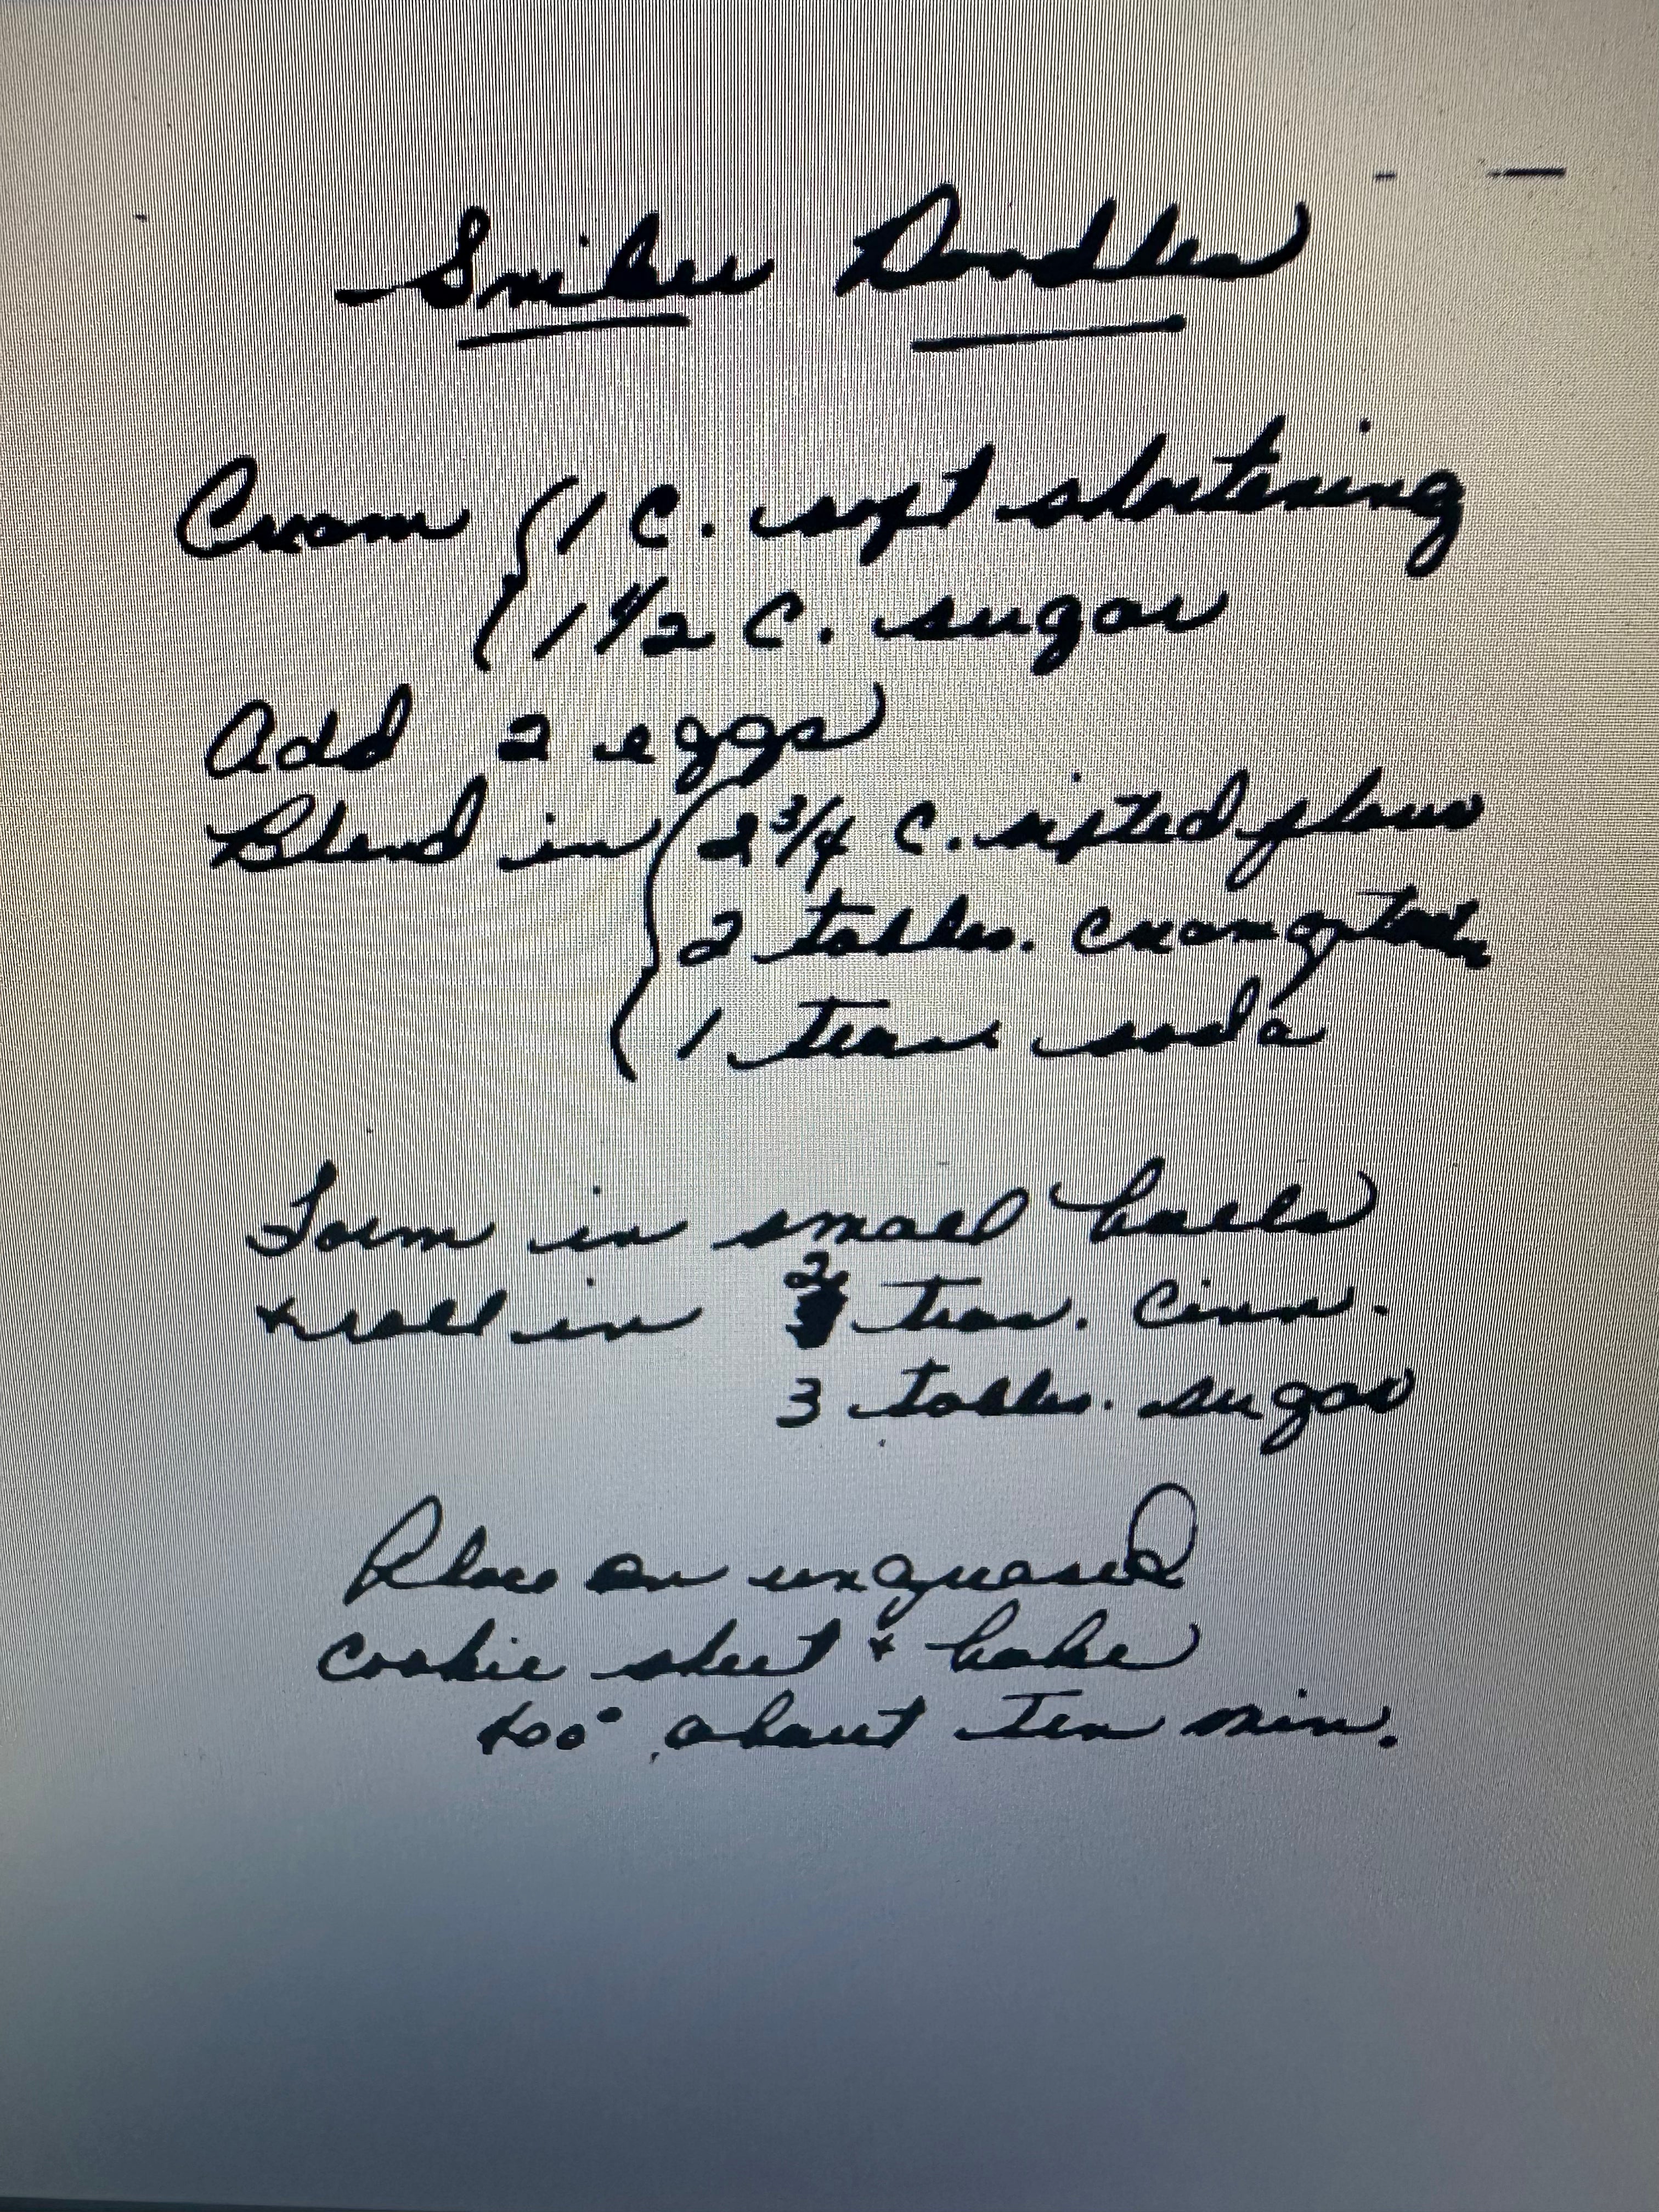 Sniker Doodles
Cream { 1 C. soft shortening
1 1/2 C. sugar
Add 2 eggs
Blend in { 2 3/4 C. sifted flour
2 tables. cream of tarter
1 teas soda
Form in small balls
& roll in 2 teas. Cinn.
3 tables. sugar
Place on ungreased
cookie sheet & bake
400° about Ten min.